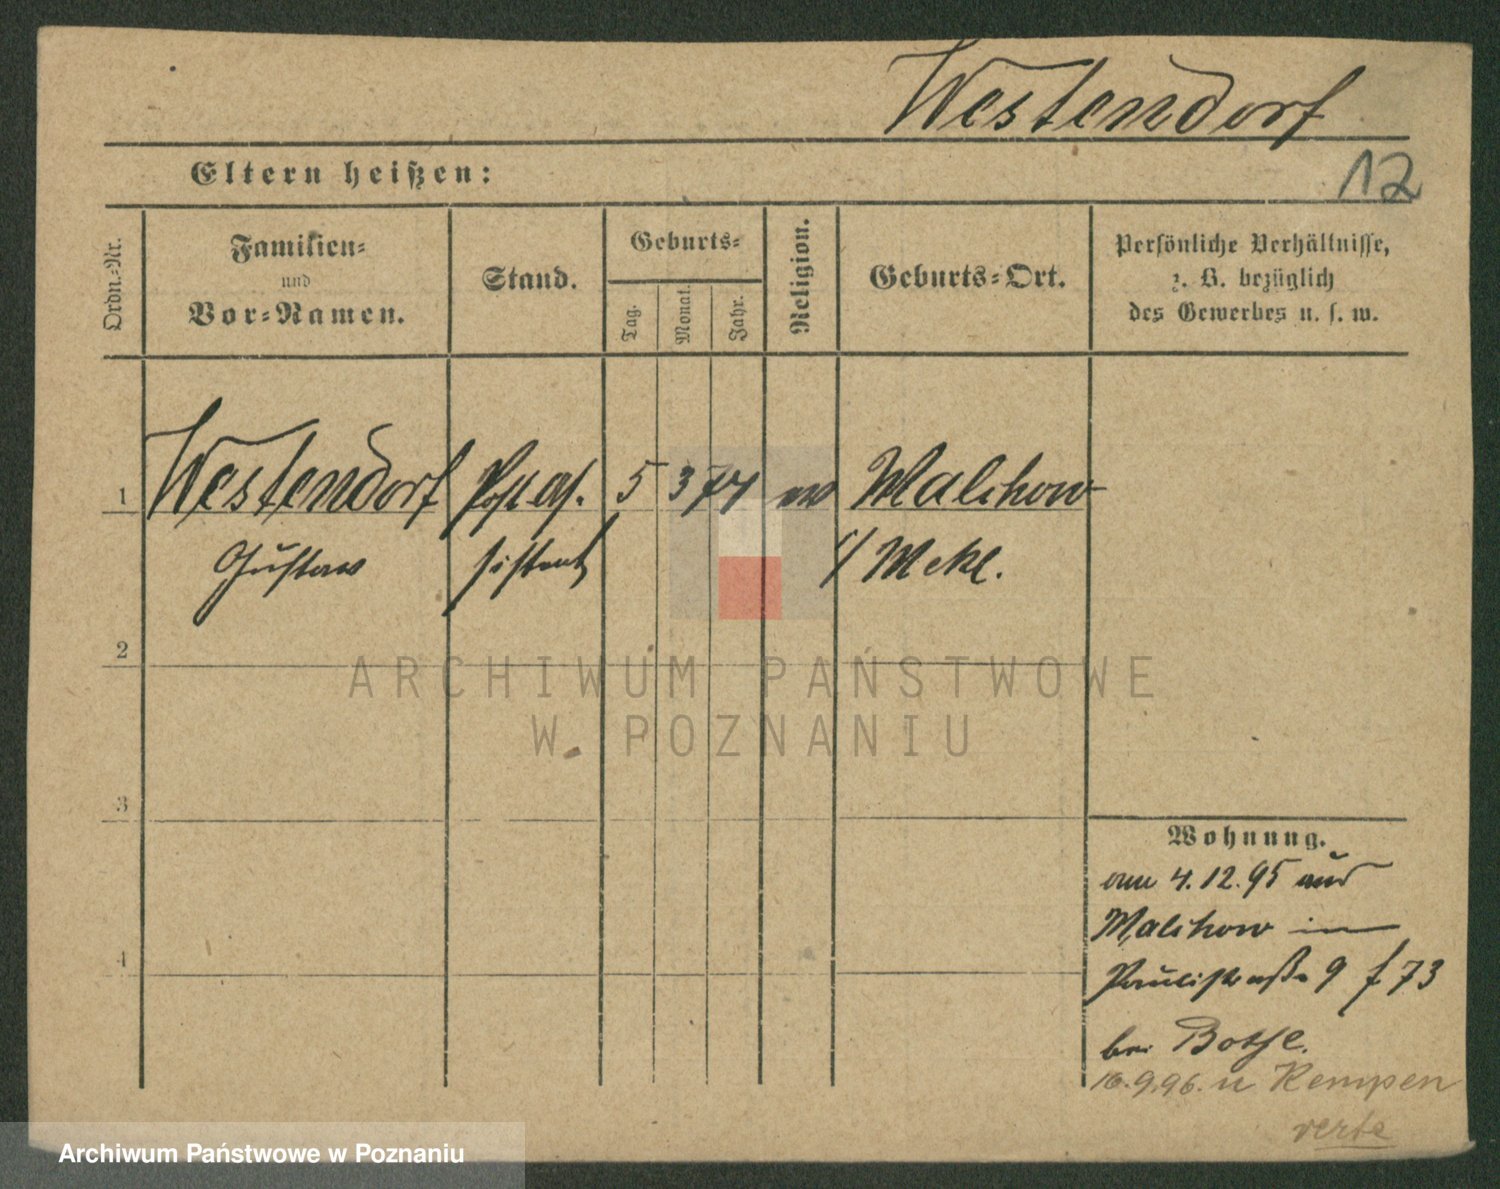 Westendorf
12
Eltern heißen:
Ordn.-Nr.
Familien-
und
Vor-Namen.
Stand.
Geburts-
Tag.
Monat.
Jahr.
Religion.
Geburts-Ort.
Persönliche Verhältnisse,
z. B. bezüglich
des Gewerbes u. s. w.
1 Westendorf Post as. 5 3 74 ev Malchow
Gustav sistent i/ Mekl.
2
3
4
ARCHIWUM PAŃSTWOWE
W POZNANIU
Wohnung.
am 4.12.95 aus
Malchow in
Paulistraße 9 f 73
bei Bothe.
16.9.96. n Kempen
verte
Archiwum Państwowe w Poznaniu